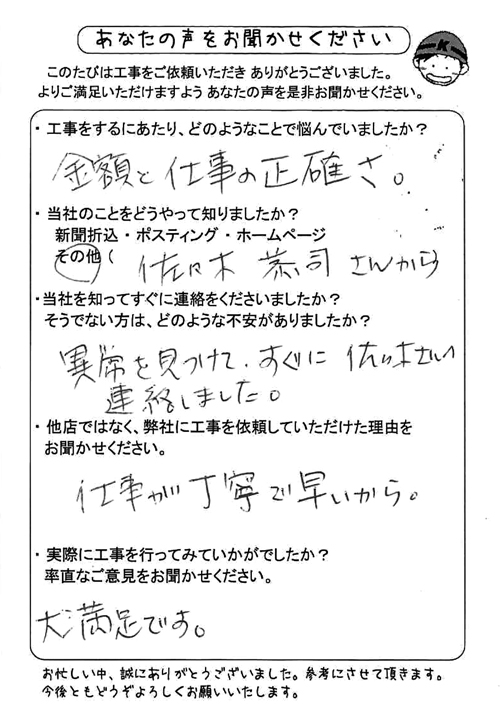 あなたの声をお聞かせください
K
このたびは工事をご依頼いただき ありがとうございました。
よりご満足いただけますよう あなたの声を是非お聞かせください。
・工事をするにあたり、どのようなことで悩んでいましたか？
金額と仕事の正確さ。
・当社のことをどうやって知りましたか？
新聞折込・ポスティング・ホームページ
その他（ 佐々木 恭司 さんから
・当社を知ってすぐに連絡をくださいましたか？
そうでない方は、どのような不安がありましたか？
異常を見つけて、すぐに 佐々木さんへ
連絡しました。
・他店ではなく、弊社に工事を依頼していただけた理由を
お聞かせください。
仕事が丁寧で早いから。
・実際に工事を行ってみていかがでしたか？
率直なご意見をお聞かせください。
大満足です。
お忙しい中、誠にありがとうございました。参考にさせて頂きます。
今後ともどうぞよろしくお願いいたします。